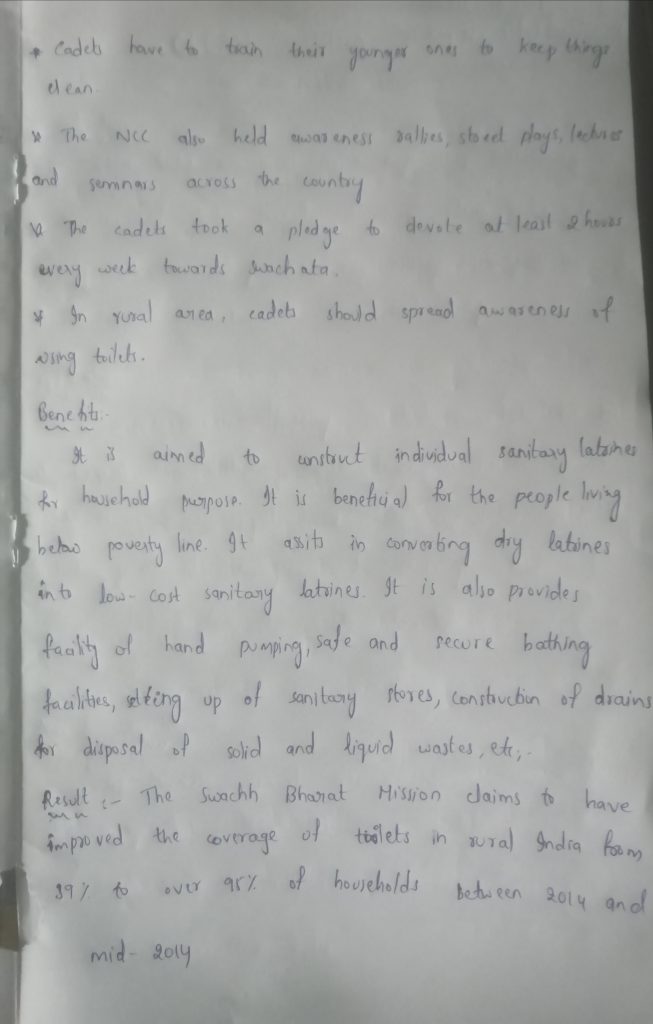 * Cadets have to train their younger ones to keep things
clean.
* The NCC also held awareness rallies, street plays, lectures
and seminars across the country
* The cadets took a pledge to devote at least 2 hours
every week towards swachata.
* In rural area, cadets should spread awareness of
using toilets.
Benefits:-
It is aimed to construct individual sanitary latrines
for household purpose. It is beneficial for the people living
below poverty line. It assits in converting dry latrines
into low-cost sanitary latrines. It is also provides
facility of hand pumping, safe and secure bathing
facilities, setting up of sanitary stores, construction of drains
for disposal of solid and liquid wastes, etc,.
Result :- The Swachh Bharat Mission claims to have
improved the coverage of toilets in rural India from
39% to over 95% of households between 2014 and
mid-2014